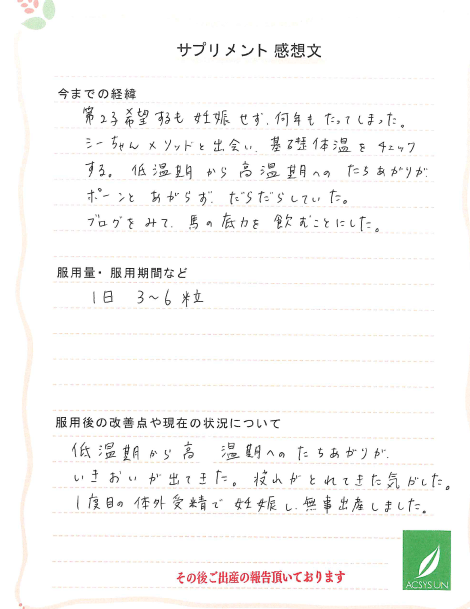 サプリメント 感想文
今までの経緯
第2子希望するも 妊娠せず、何年もたってしまった。
シーちゃんメソッドと出会い、基礎体温をチェック
する。低温期から高温期への たちあがりが、
ポーンと あがらず、だらだらしていた。
ブログをみて、馬の底力を 飲むことにした。
服用量・服用期間など
1日 3〜6粒
服用後の改善点や現在の状況について
低温期から高 温期への たちあがりが、
いきおいが出てきた。疲れがとれてきた気がした。
1度目の 体外受精で 妊娠し、無事出産しました。
その後ご出産の報告頂いております
ACSYSUN